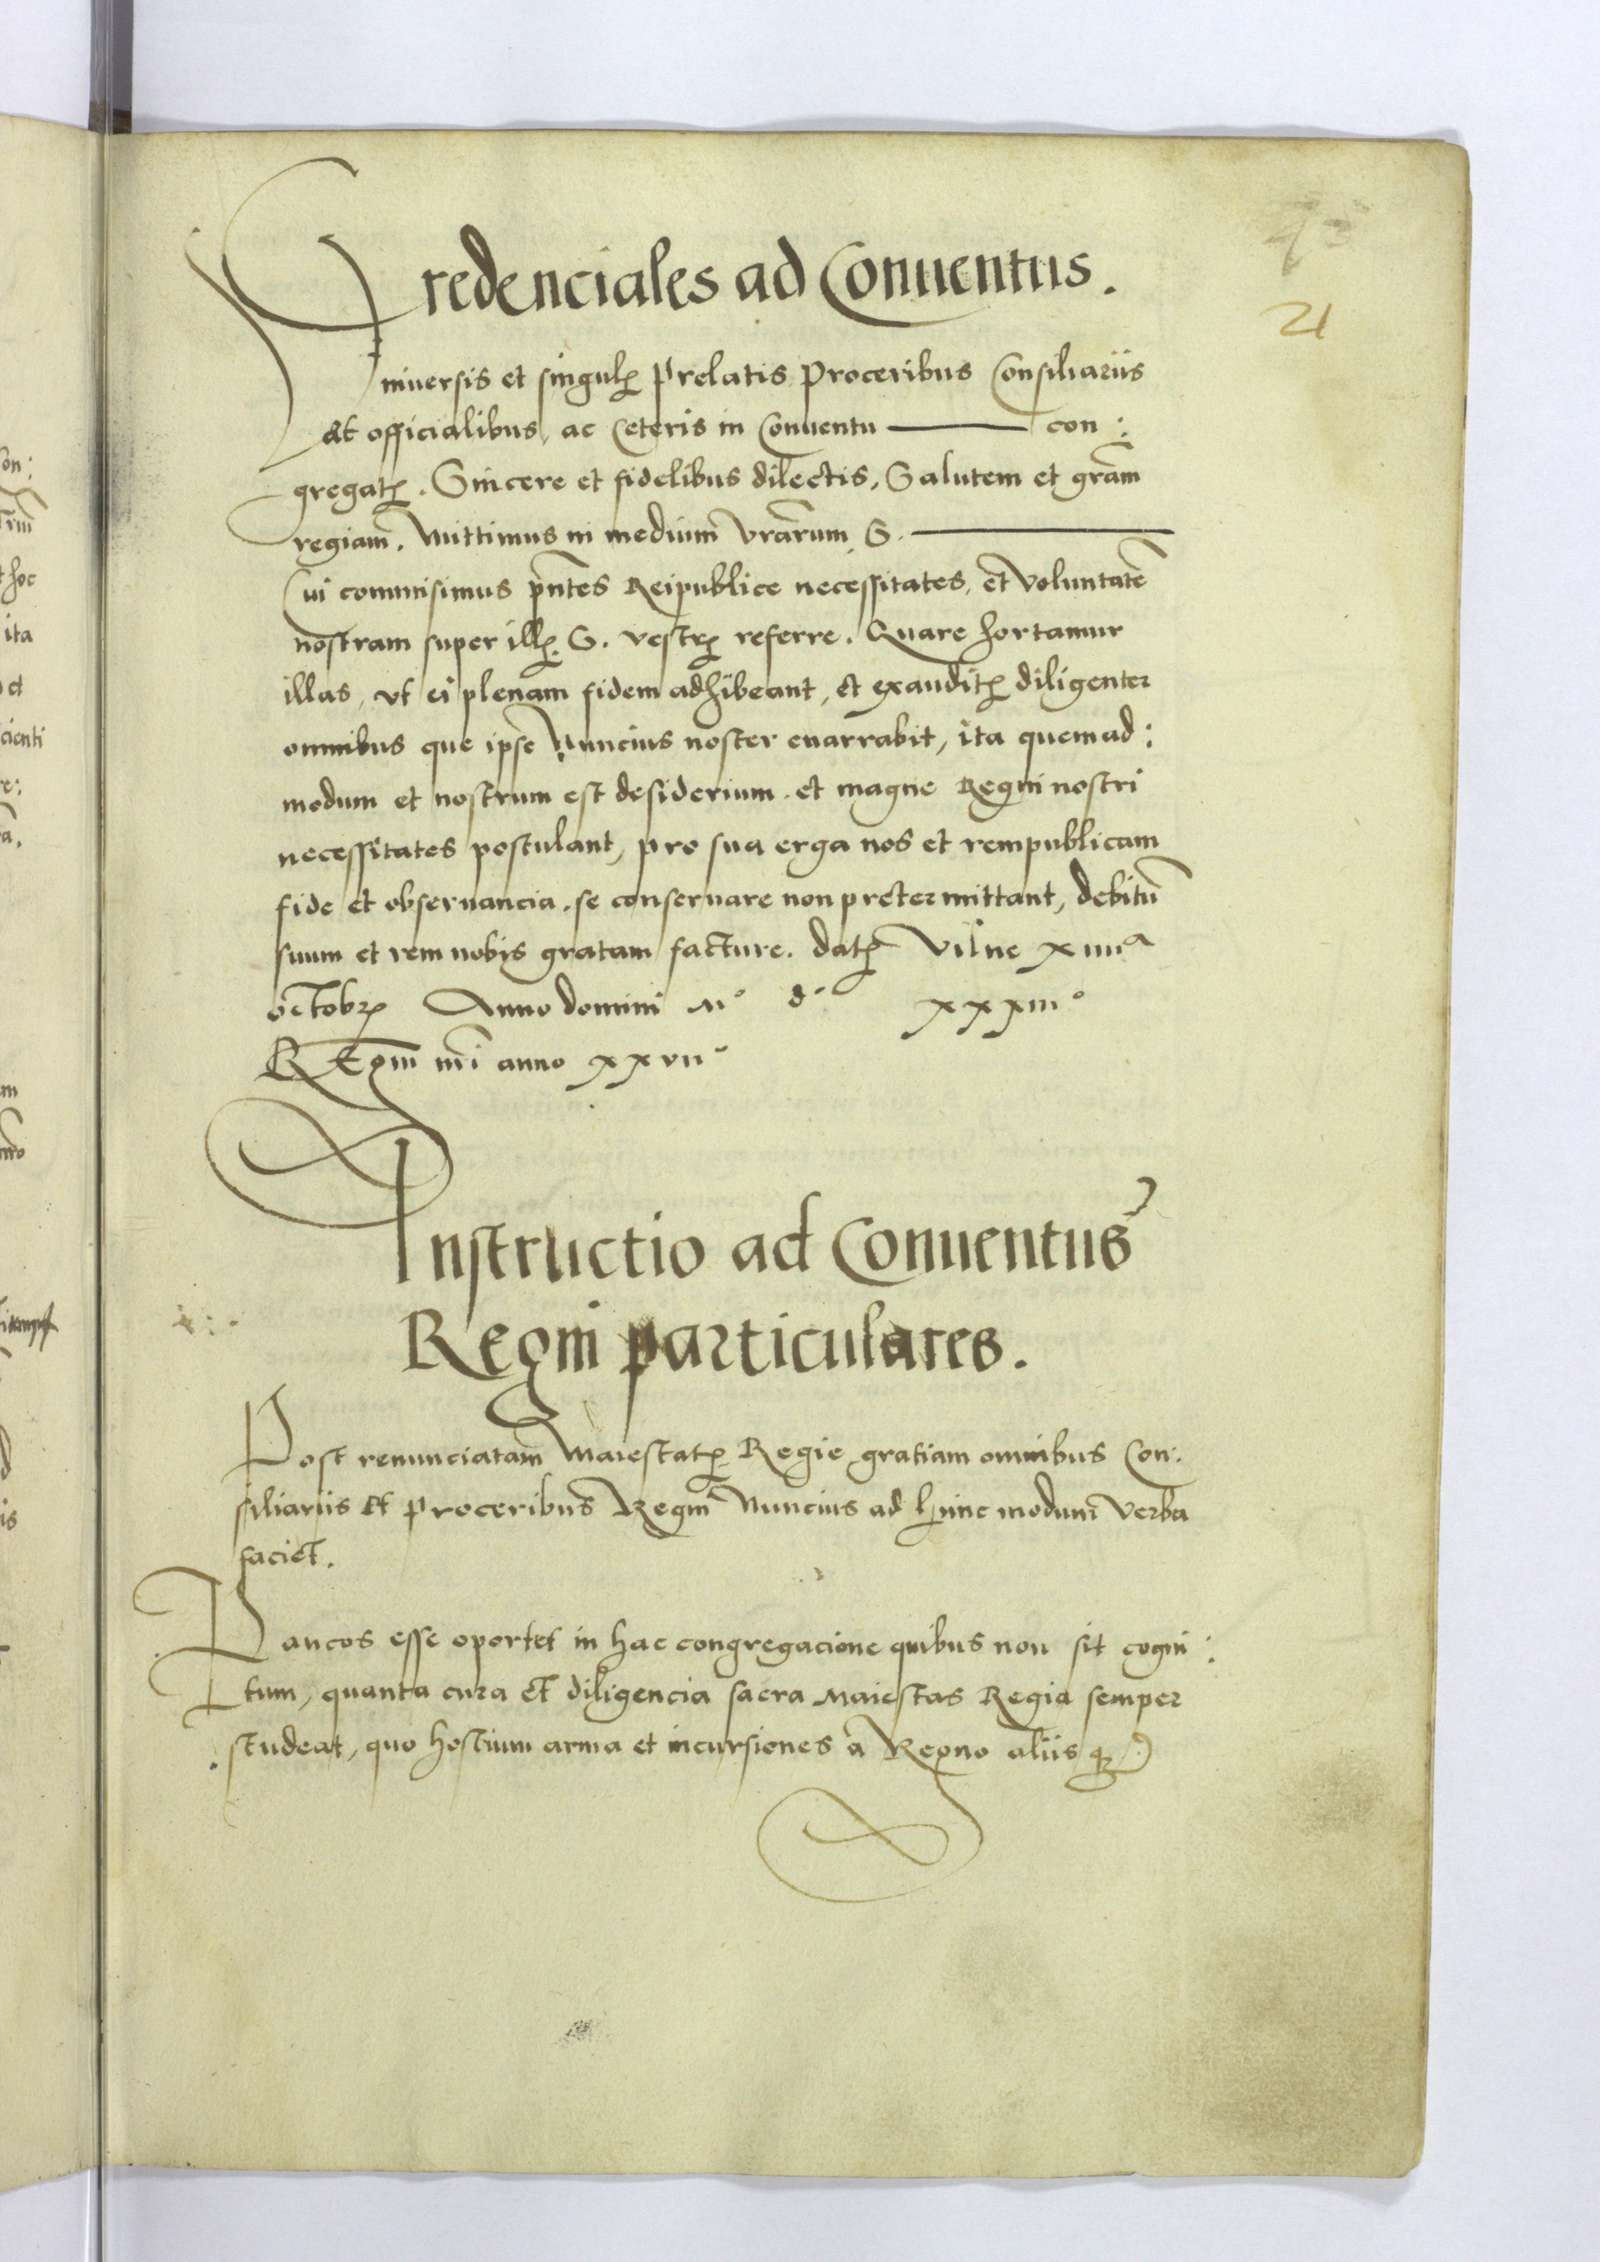 21
Credenciales ad Conuentus.
Vniuersis et singulꝫ prelatis proceribus Consiliariis
et officialibus, ac ceteris in Conuentu ——— con:
gregatꝫ. Sincere et fidelibus dilectis, Salutem et gr̄am
regiam̄. Mittimus in medium̄ Vr̄arum S. ———
Cui commisimus pn̄tes Reipublice necessitates, et Voluntatē
nostram super illꝫ S. vestrꝫ referre. Quare hortamur
illas, vt ei plenam fidem adhibeant, et exauditꝫ diligenter
omnibus que ipse Nuncius noster enarrabit, ita quemad:
modum et nostrum est desiderium et magne Regni nostri
necessitates postulant, pro sua erga nos et rempublicam
fide et obseruancia. se conseruare non pretermittant, debitū
suum et rem nobis gratam facture. datꝫ Vilne xiiiiª
octobrꝫ Anno domini Mº dº xxxiiiº
Regni nr̄i anno xxviiº
Instructio ad Conuentus
Regni particulares.
Post renunciatam̄ Maiestatꝫ Regie gratiam omnibus Con:
siliariis et proceribus Regni Nuncius ad hunc modum Verba
faciet.
Paucos esse oportet in hac congregacione quibus non sit cogni:
tum, quanta cura et diligencia sacra Maiestas Regia semper
studeat, quo hostium arma et incursiones a Regno aliisqꝫ